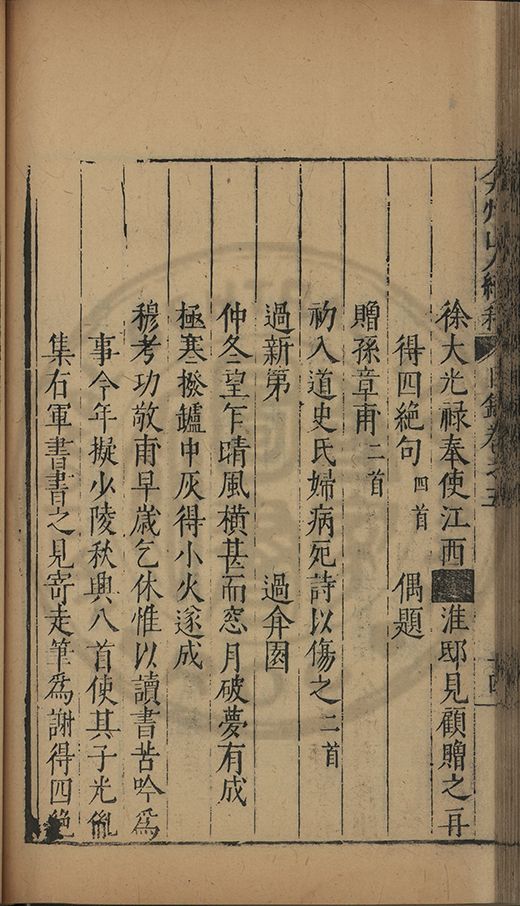 徐大光祿奉使江西淮邸見顧贈之再
得四絶句四首 偶題
贈孫章甫二首
初入道史氏婦病死詩以傷之二首
過新第 過弇園
仲冬望乍晴風橫甚而窓月破夢有成
極寒撥鑪中灰得小火遂成
穆考功敬甫早歲乞休惟以讀書苦吟爲
事今年擬少陵秋興八首使其子光胤
集右軍書書之見寄走筆爲謝得四絶